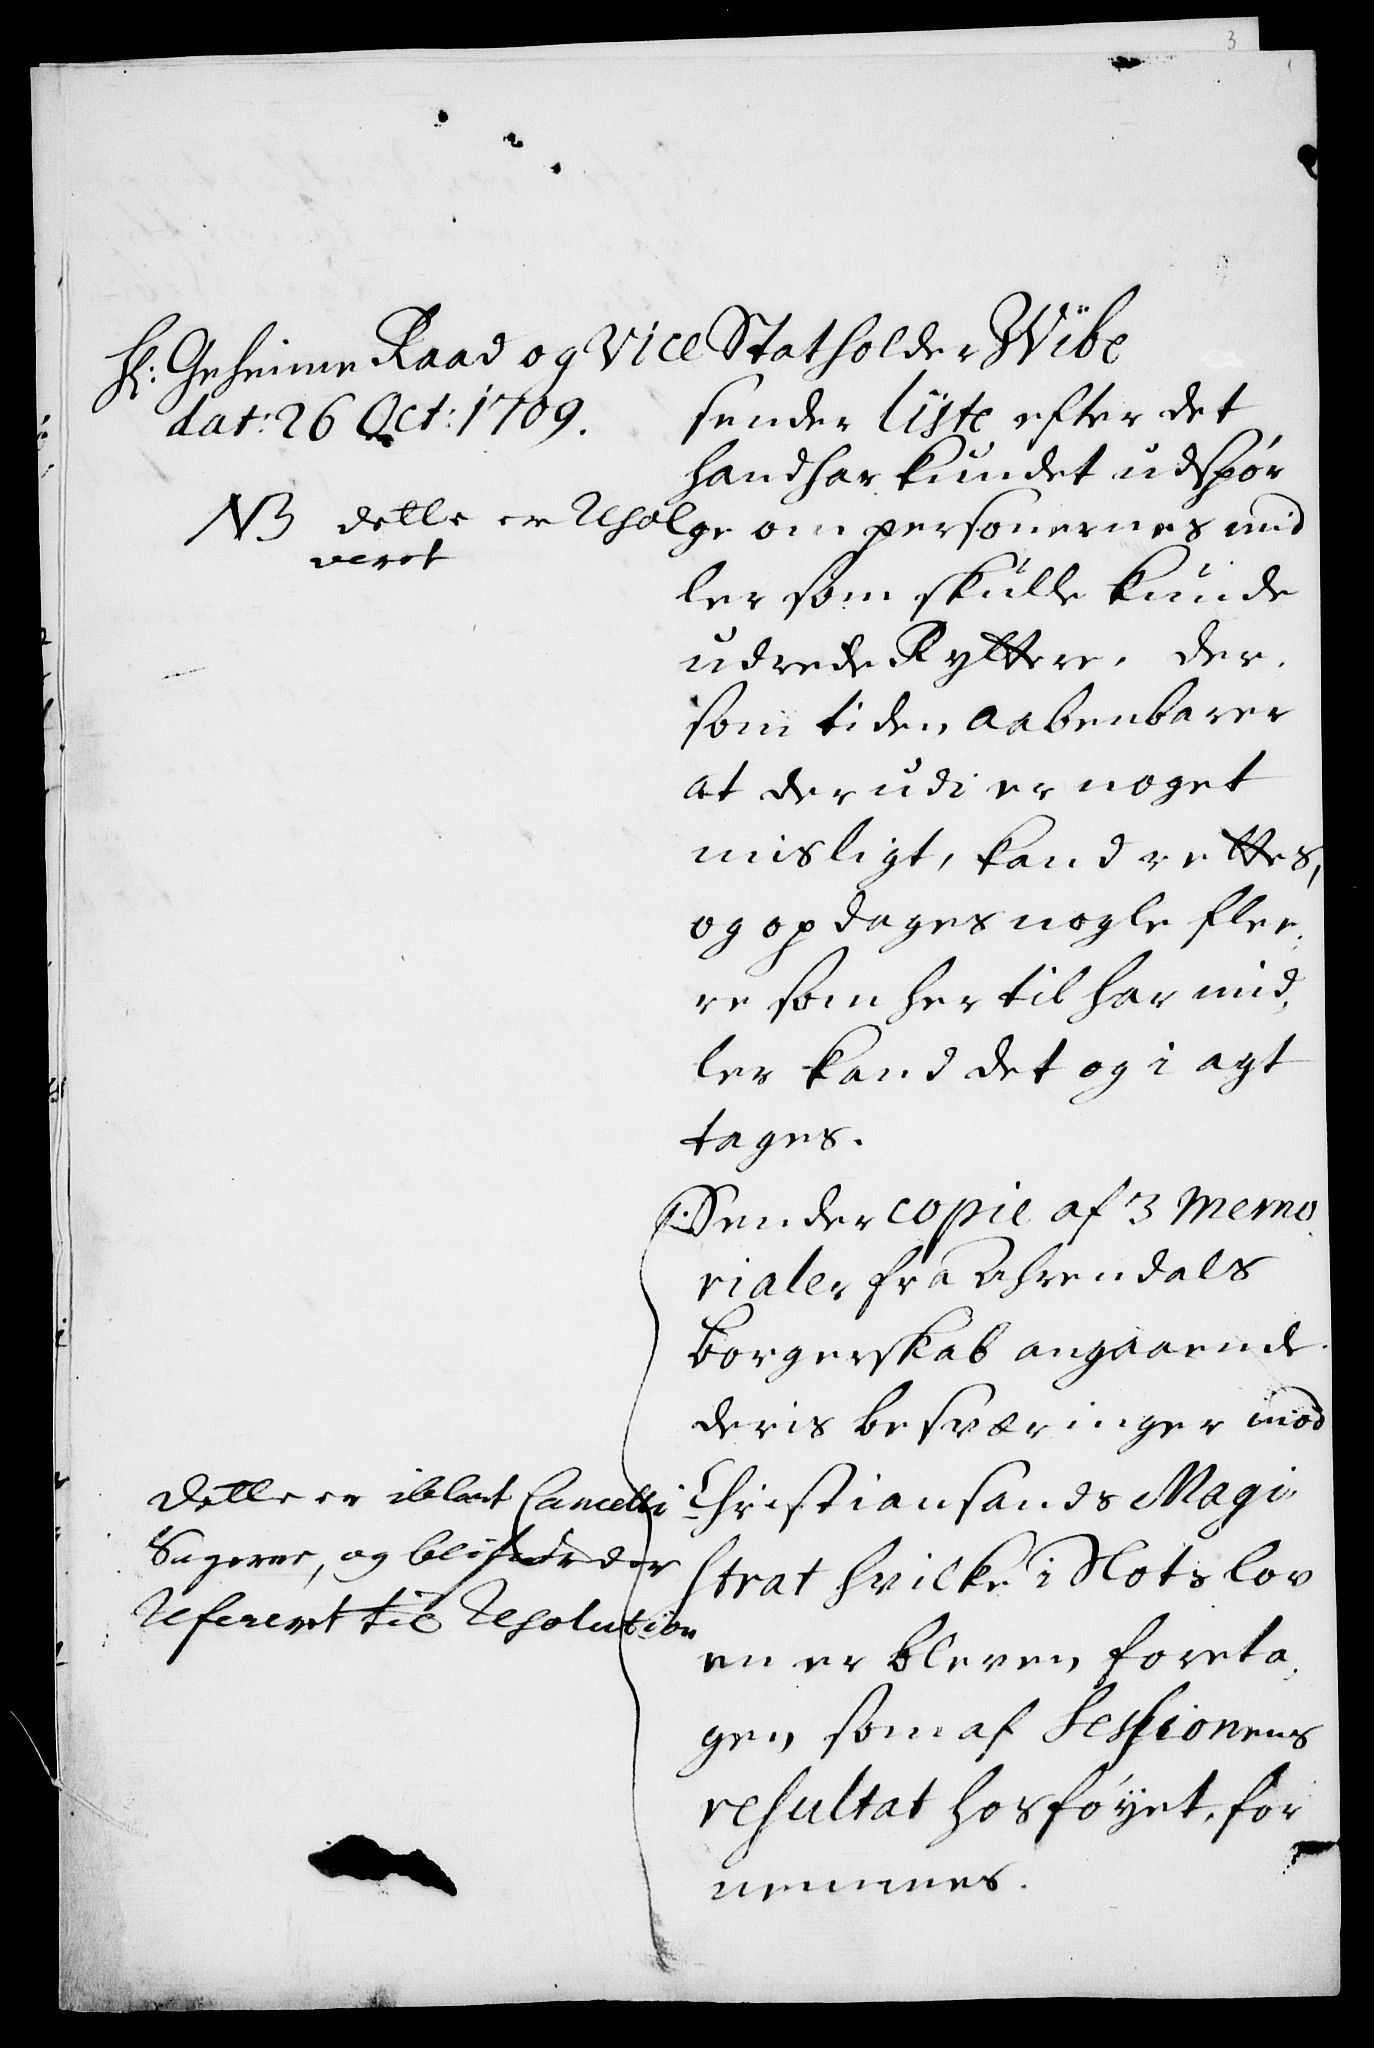 3
H: Geheime Raad og Vice Statholder Wibe
dat: 26 Oct: 1709.
sender liste efter det
hand har kundet udspør
NB dette er Resol
veret
ge om personernes mid
ler som skulle kunde
udrede Ryttere, der,
som tiden aabenbarer
at der udi er noget
misligt, kand rettes,
og opdages nogle flee,
re som her til har mid,
ler kand det og i agt
tages.
Sender copie af 3 memo
rialer fra Ahrendals
borgerskab angaaende
deris besværinger mod
Christiansands Magi
strat hvilke i Slots lov
en er bleven foreta,
gen som af Sessionens
resultat hosføyet, for
nemmes.
Dette er iblant Cancelli
Sagerne, og blifver der
Refereret til Resolution